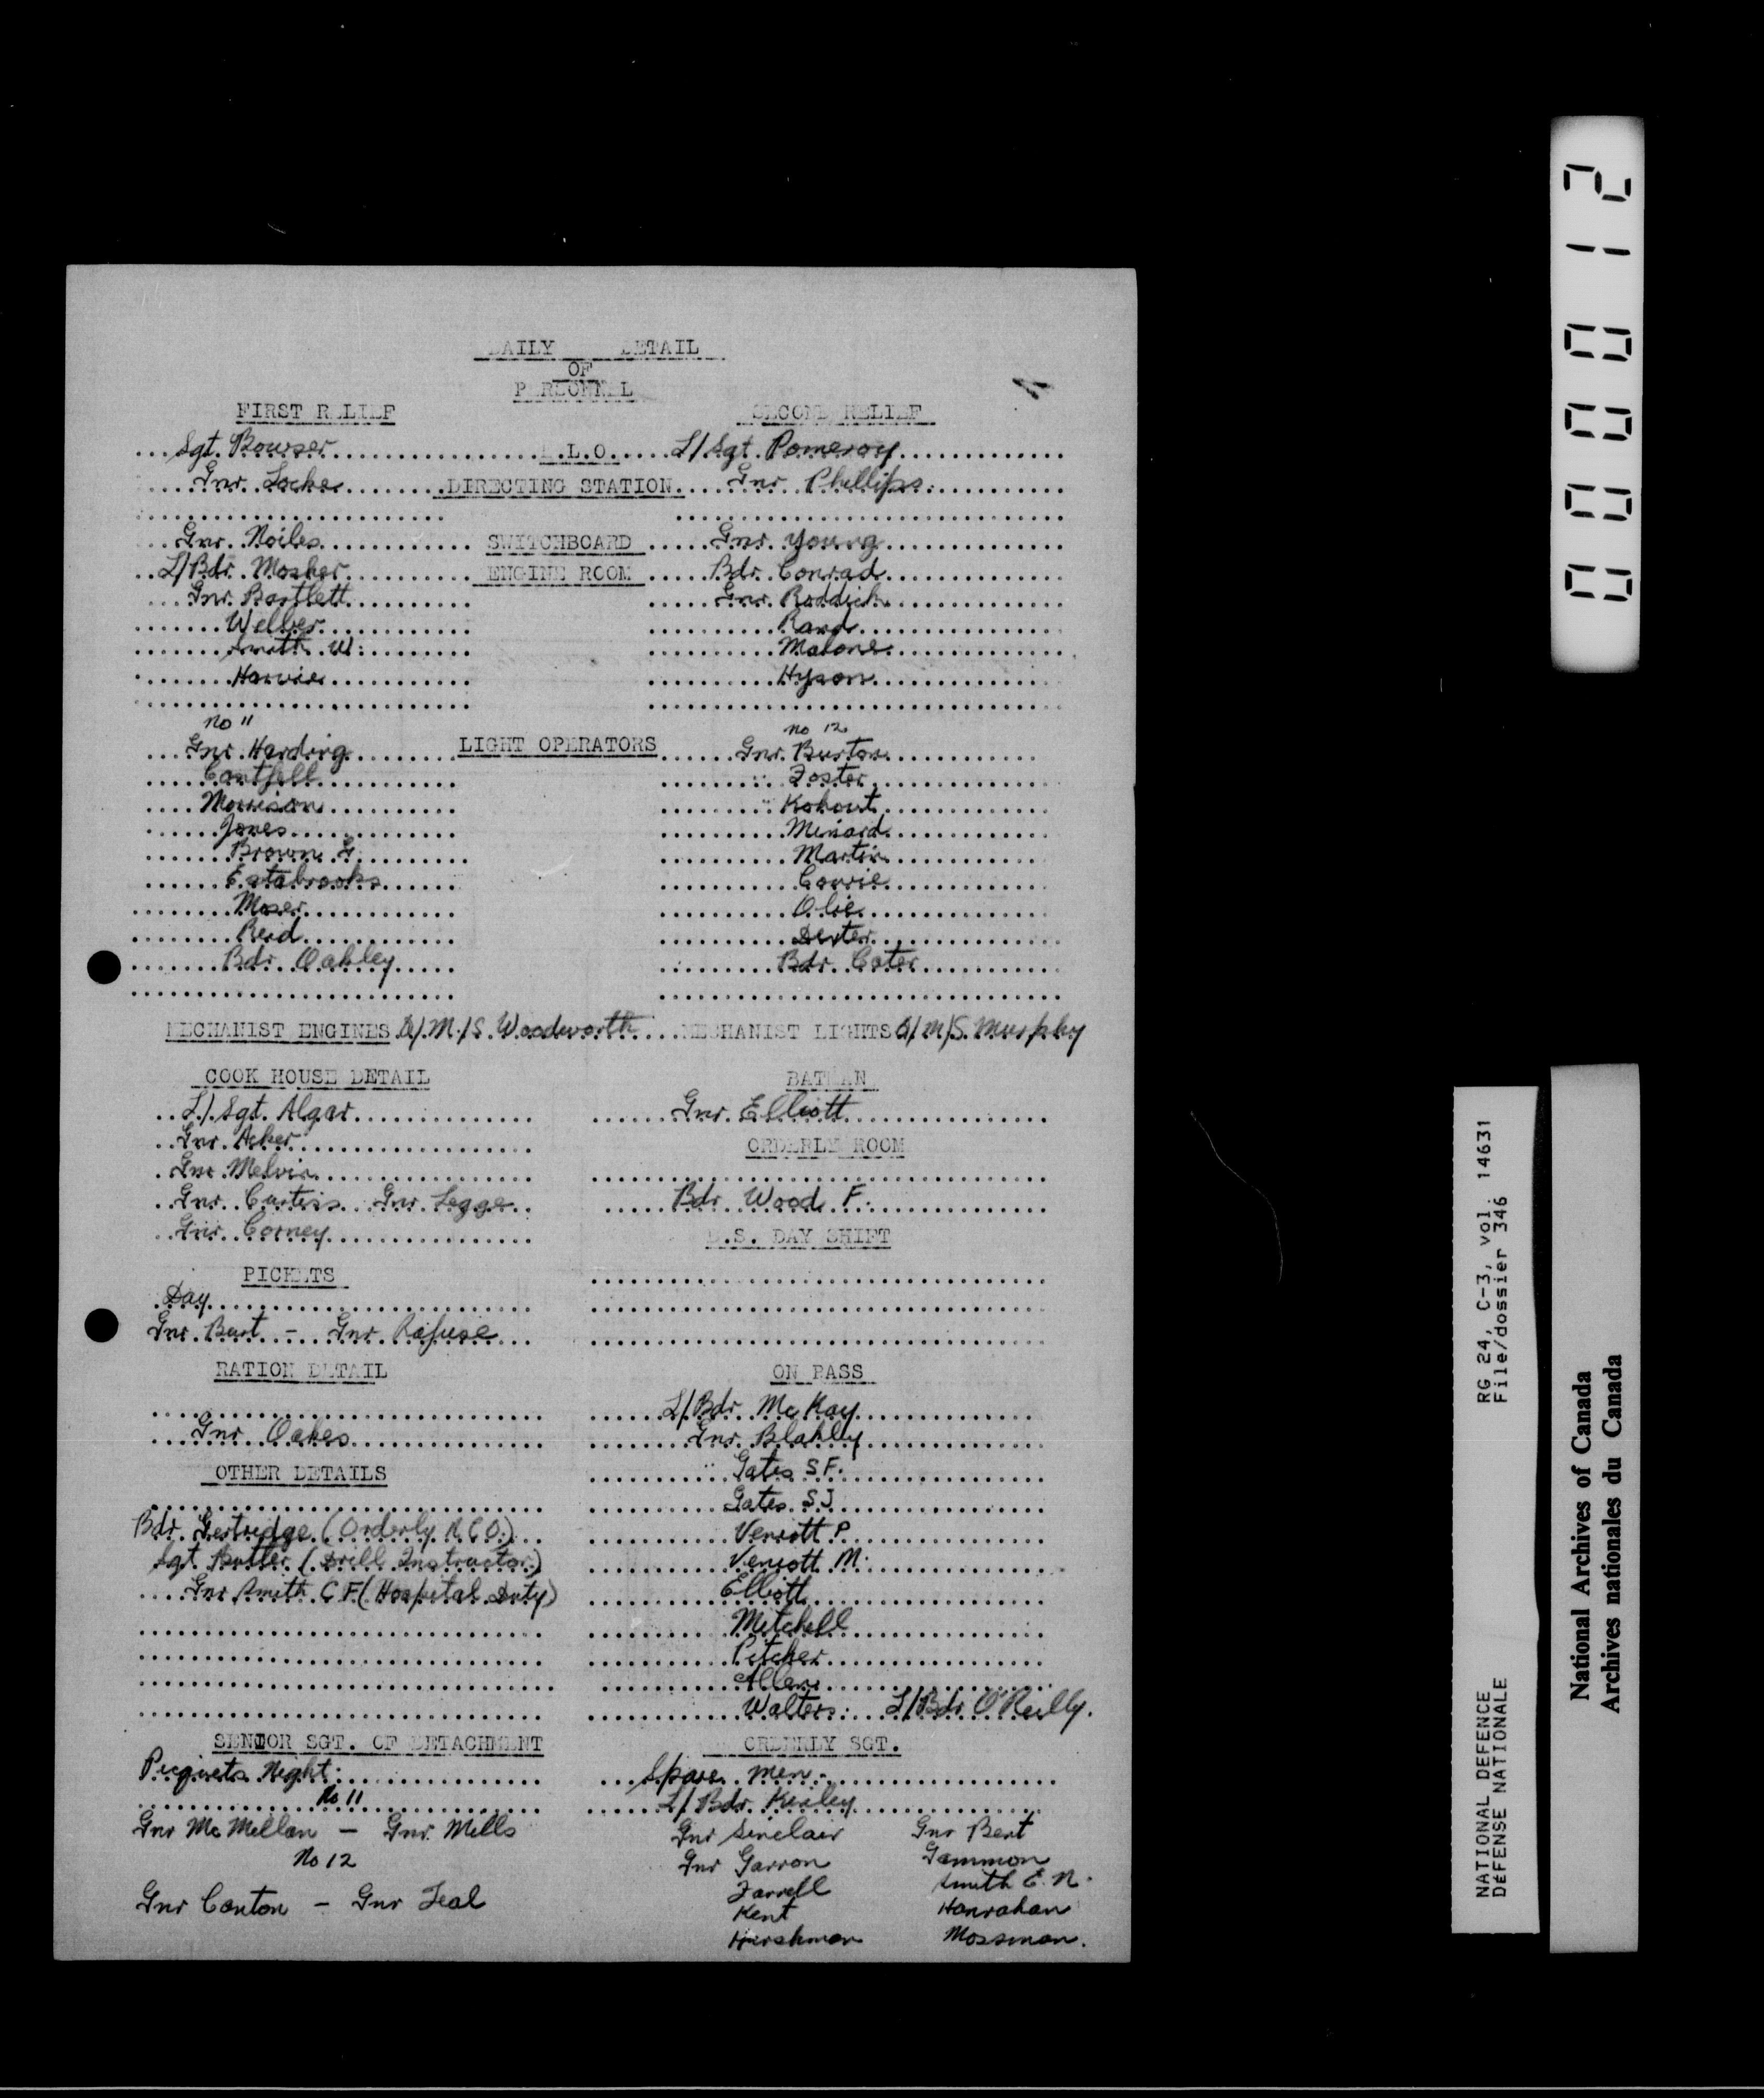 DAILY DETAIL
OF
PERSONNEL
FIRST RELIEF SECOND RELIEF
Sgt. Bowser .L.O. L/Sgt Pomeroy
Gnr. Locke DIRECTING STATION Gnr Phillips
Gnr. Noiles SWITCHBOARD Gnr Young
L/Bdr. Mosher ENGINE ROOM Bdr. Conrad
Gnr. Bartlett Gnr. Roddick
Welber Rand
Smith W. Malone
Harvie Hyson
No 11 No 12
Gnr. Harding LIGHT OPERATORS Gnr. Burton
Cantfell " Foster
Morrison " Kohout
Jones Menard
Brown G Martin
Estabrooks Courie
Moser Olie
Reid Dexter
Bdr. Oakley Bdr. Cater
MECHANIST ENGINES A/M/S. Woodworth MECHANIST LIGHTS A/M/S. Murphy
COOK HOUSE DETAIL BATMAN
L/Sgt. Algar Gnr. Elliott
Gnr. Acker ORDERLY ROOM
Gnr. Melvin
Gnr. Curtis Gnr Legge Bdr Wood F.
Gnr. Corney .S. DAY SHIFT
PICKETS
Day
Gnr. Burt - Gnr. Refuse
RATION DETAIL ON PASS
L/Bdr McKay
Gnr Oakes Gnr. Blakley
OTHER DETAILS " Gates S F.
Gates S J
Bdr. Gertridge (Orderly N.C.O.) Veniott P
Sgt Butler (Drill Instructor) Veniott M.
Gnr Smith C F (Hospital Duty) Elliott
Mitchell
Pitcher
Allen
Walters L/Bdr O'Reilly.
SENIOR SGT. OF DETACHMENT ORDERLY SGT.
Picquets Night: Spare men -
No 11 L/Bdr. Kerley
Gnr McMellan - Gnr. Mills Gnr Sinclair Gnr Bent
No 12 Gnr Garron Gammon
Farrell Smith E. N.
Gnr Canton - Gnr Teal Kent Hanrahan
Hirshman Mossman.
000012
RG 24, C-3, vol. 14631
File/dossier 346
NATIONAL DEFENCE
DÉFENSE NATIONALE
National Archives of Canada
Archives nationales du Canada